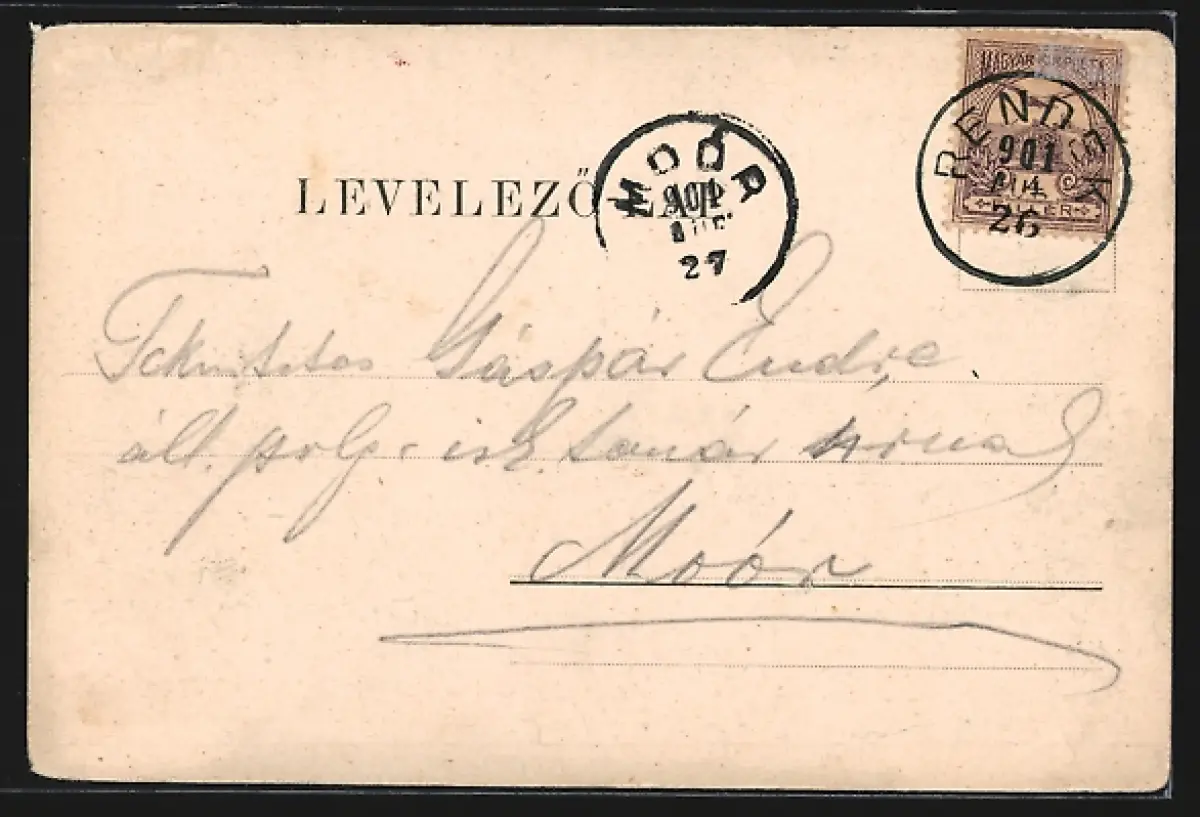 MAGYAR KIR. POSTA
RENDEK
901
26
FILLÉR
LEVELEZŐ-LAP
MOÓR
901
27
Tekintetes Gáspár Endre
ált. polg. isk. tanár úrnak
Moór